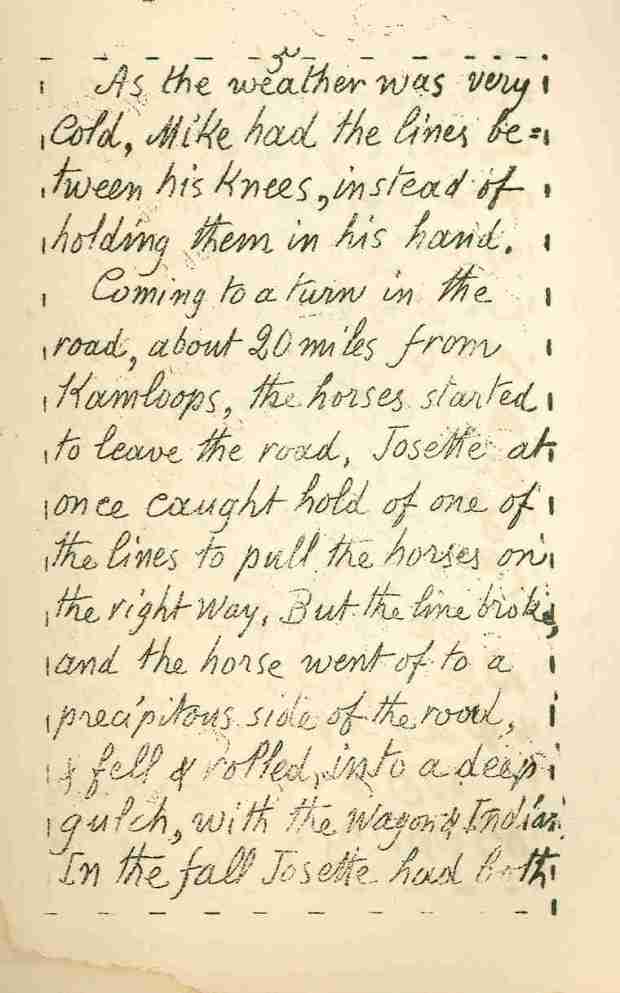 3
As the weather was very
Cold, Mike had the lines be=
tween his Knees, instead of
holding them in his hand.
Coming to a turn in the
road, about 20 miles from
Kamloops, the horses started
to leave the road, Josette at
once caught hold of one of
the lines to pull the horses on
the right way. But the line broke,
and the horse went of to a
precipitous side of the road,
& fell & rolled, into a deep
gulch, with the wagon & Indian.
In the fall Josette had both